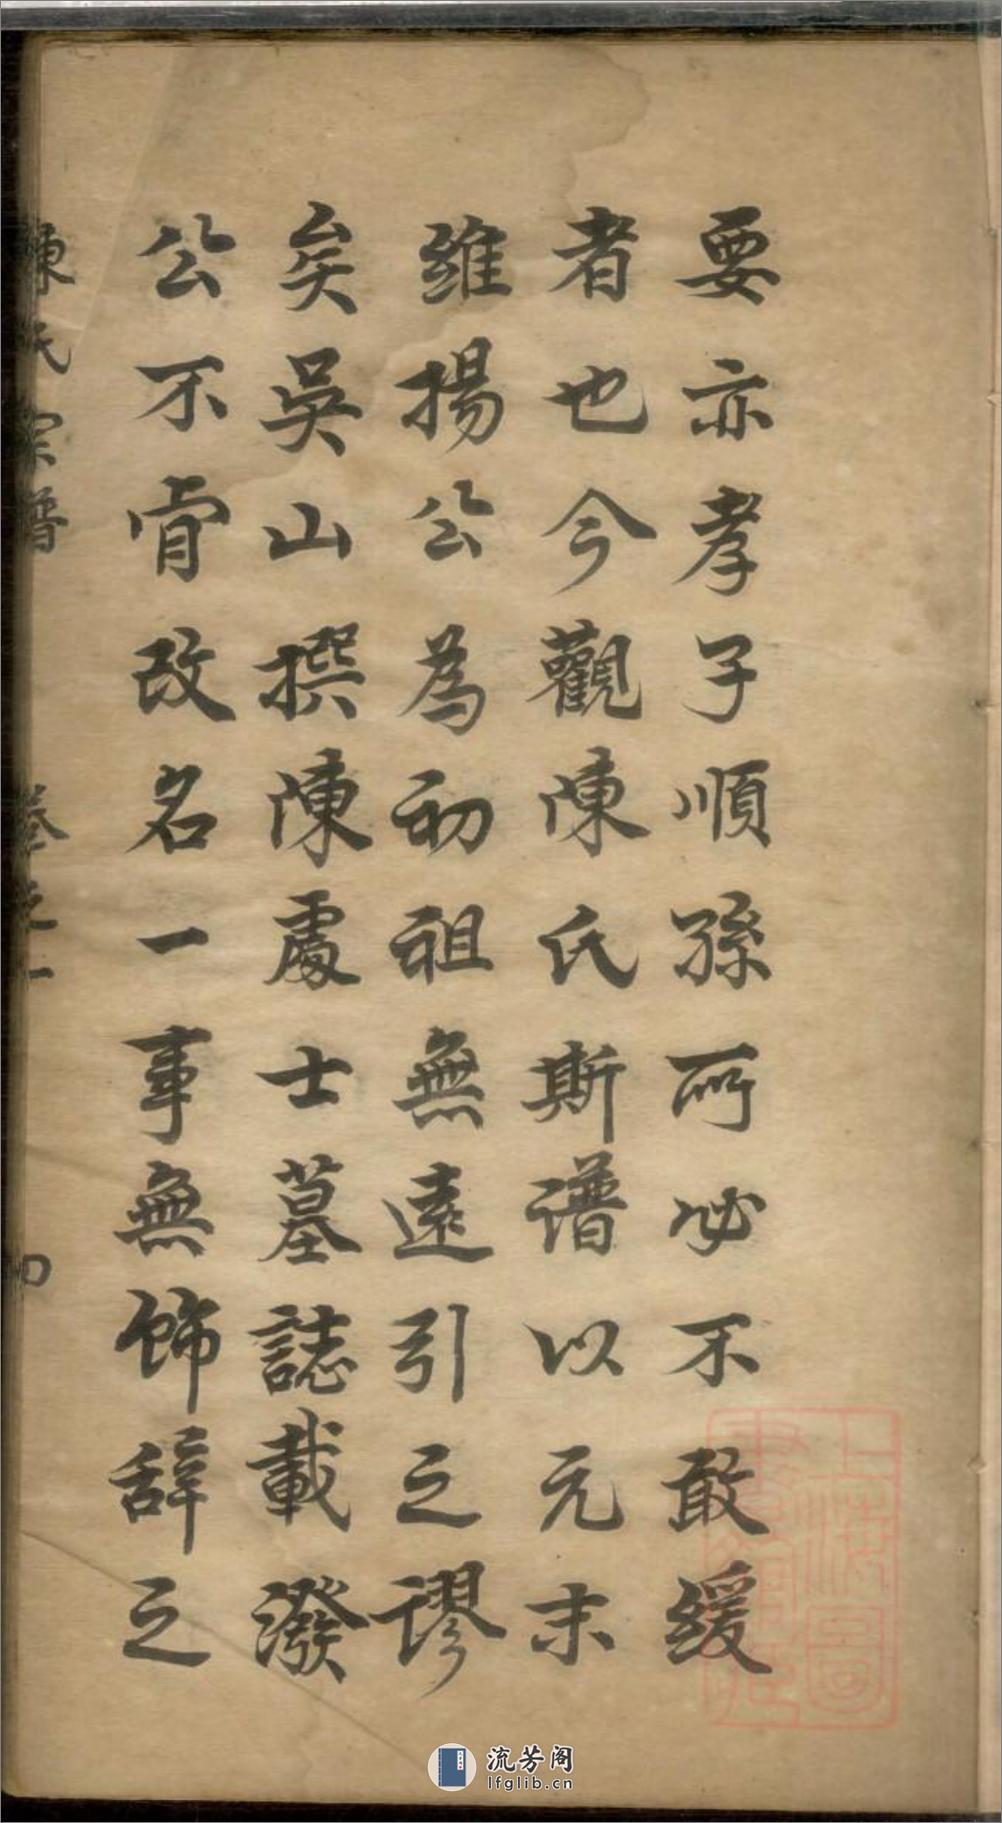 要亦孝子順孫所必不敢緩
者也今觀陳氏斯譜以元末
維揚公為初祖無遠引之謬
矣吳山撰陳處士墓誌載潑
公不肎改名一事無飾辞之
陳氏宗譜 卷之一 四
上海圖書館藏
流芳阁
lfglib.cn